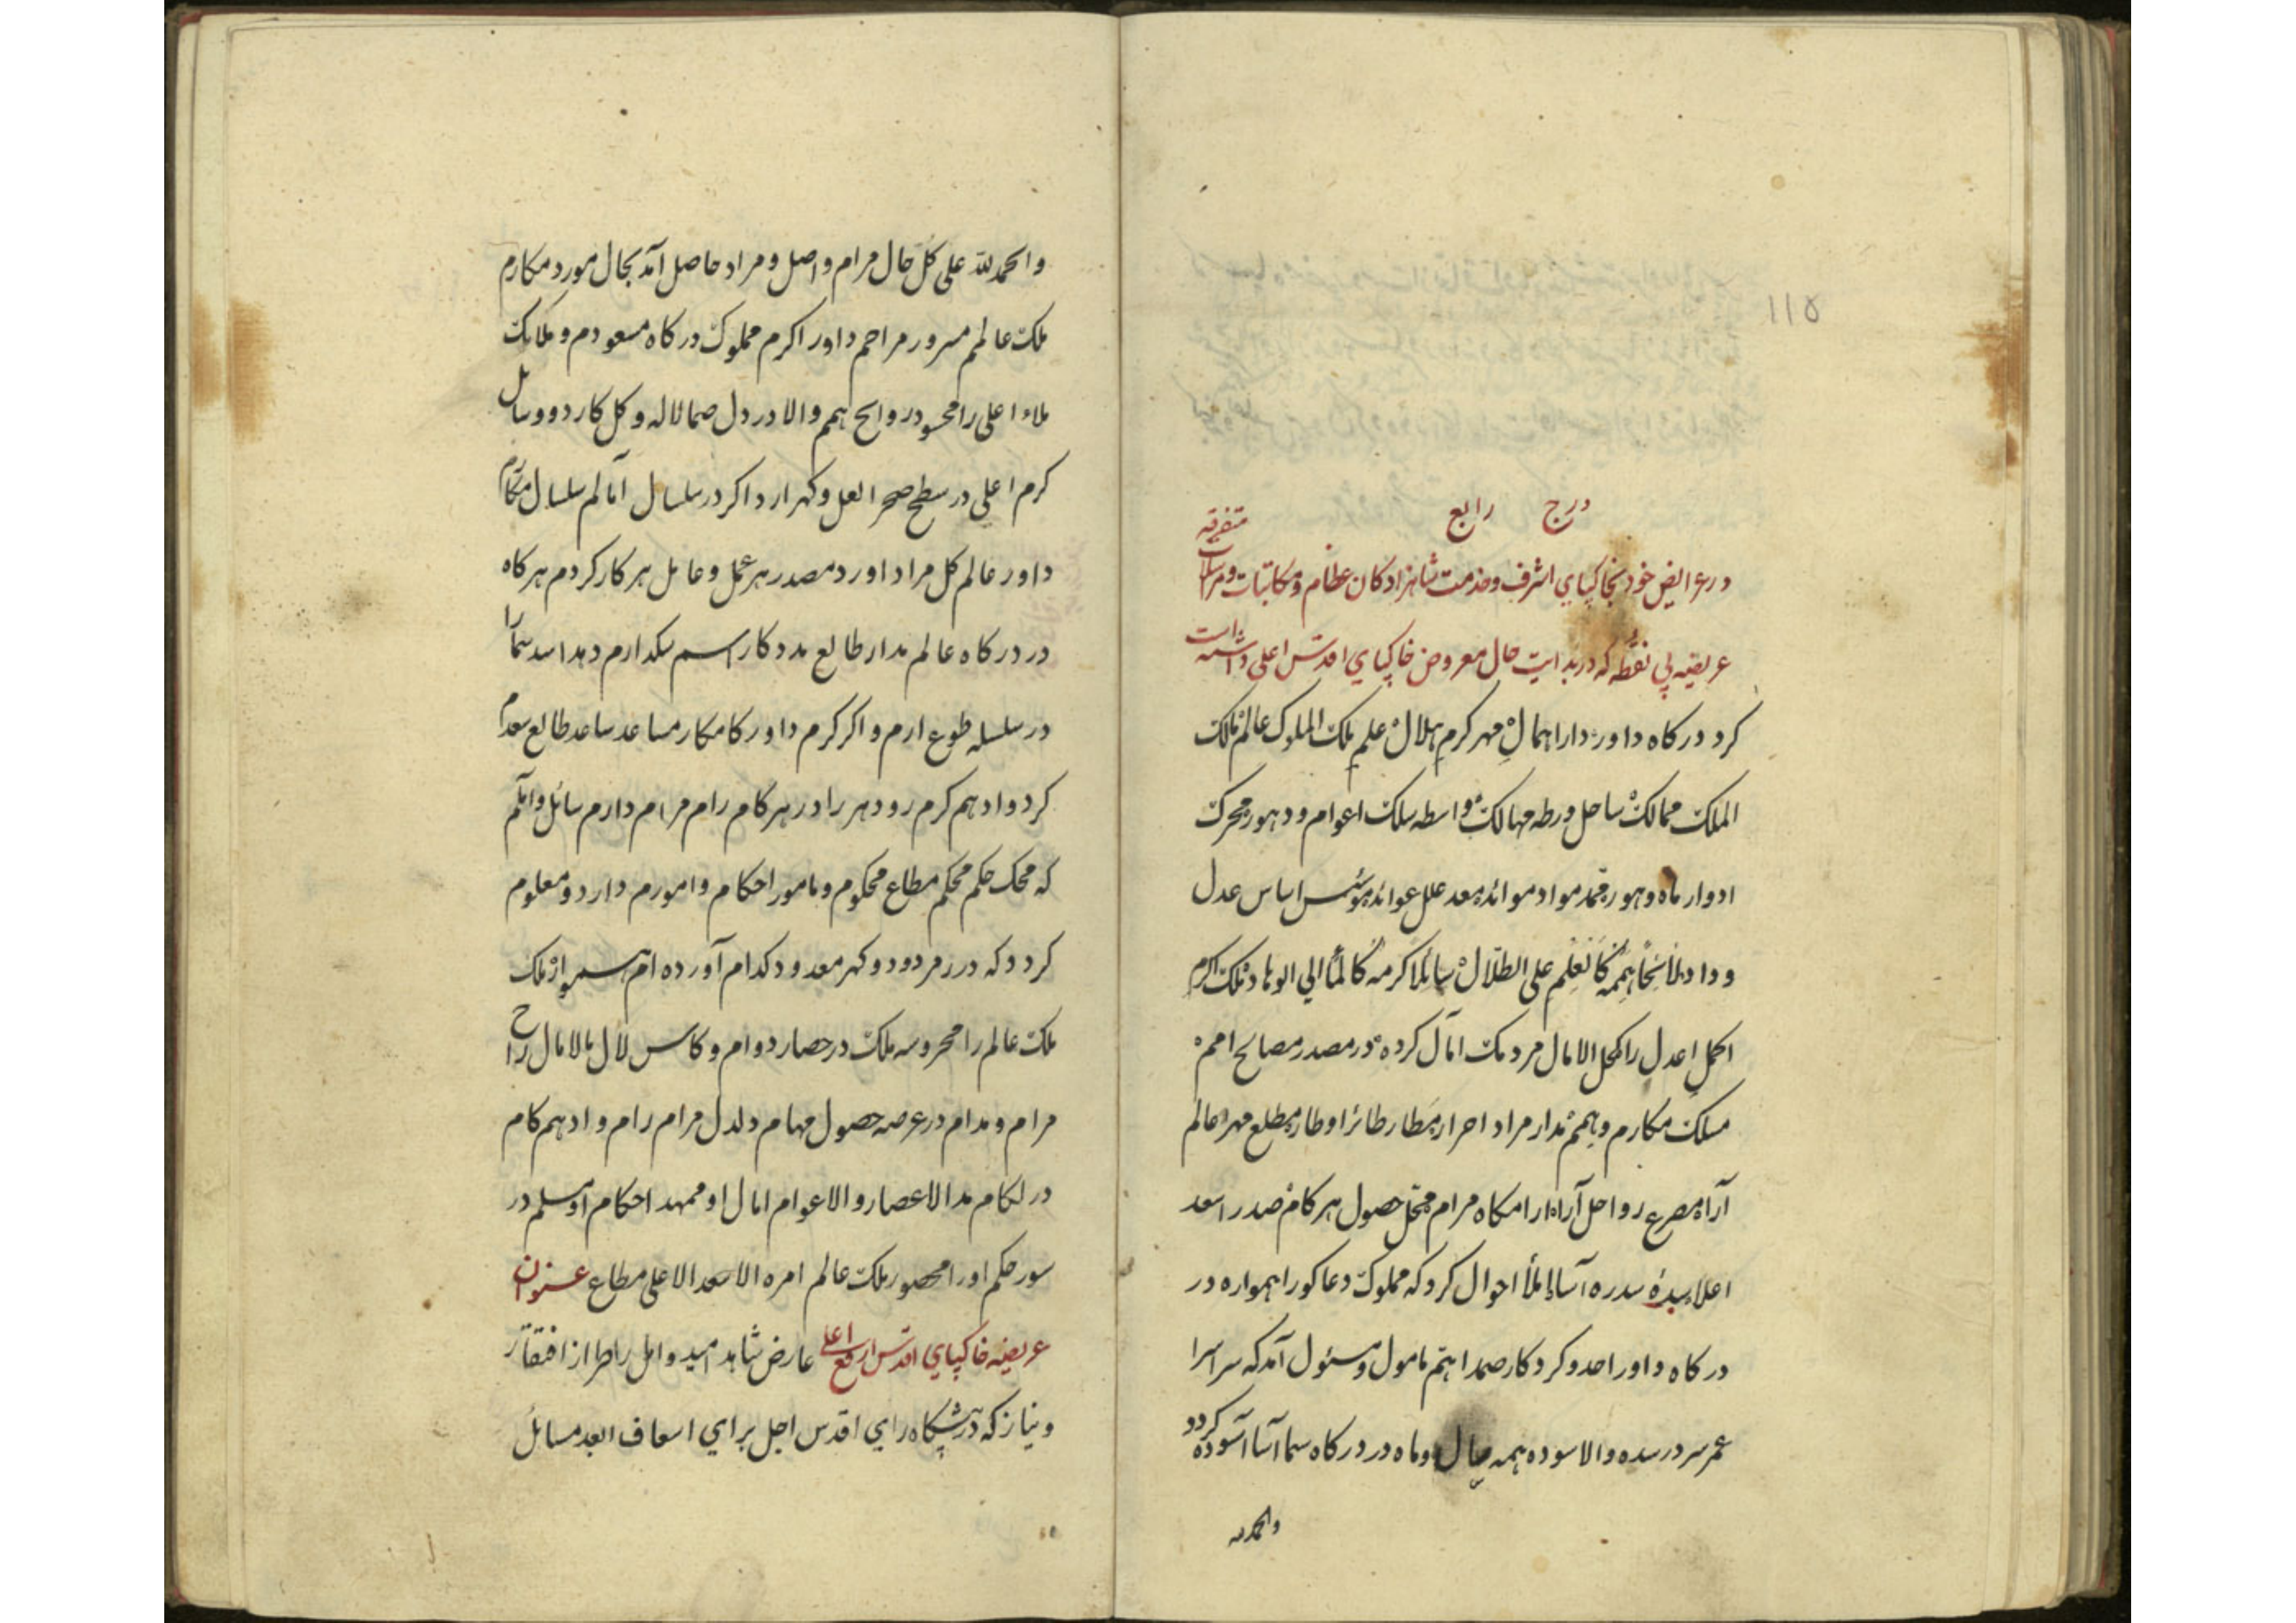 ۱۱۵
درج رابع
در عرایض خود بخاکپاي اشرف و خدمت شاهزادکان عظام و مکاتبات و مراسلات متفرقه
عریضه بی نقطه که در بدایت حال معروض خاکپاي اقدس اعلی داشته است
کرد درکاه داور دارا همال مهر کرم هلال علم ملک الملوک عالم مالک
الملک ممالک ساحل ورطه مهالک واسطه سلک اعوام و دهور محرک
ادوار ماه و هور ممد مواد موائد معد علل عوائد مؤسس اساس عدل
و داد ملأ سخا هممه کالعلم علی الطلال سائلا کرمه کالمأ الی الوهاد ملک اکرم
اکمل اعدل را کحل الامال مردمک امال کرده در مصدر مصالح امم
مسلک مکارم و همم مدار مراد احرار مطار طائر اوطار مطلع مهر عالم
آراه مصرع رواحل آراه ارامکاه مرام محل حصول هر کام صدر اسعد
اعلاء سده سدره آسا املأ احوال کرد که مملوک دعا کو را همواره در
درکاه داور احد و کردکار صمد اهم مامول و مسئول آمد که سراسر
عمر سر در سده والا سوده همه سال و ماه در درکاه سما آسا آسوده کردد
والحمدلله
والحمدلله علی کل حال مرام واصل و مراد حاصل آمد بحال مورد مکارم
ملک عالم مسرور مراحم داور اکرم مملوک درکاه مسعودم و ملایک
ملاء اعلی را محسود روایح همم والا در دل صما لاله و کل کارد و وسایل
کرم اعلی در سطح صحرا لعل و کهر ارد اکر در سلسال آمالم سلسال مکارم
داور عالم کل مراد اورد مصدر هر عمل و عامل هر کار کردم هر کاه
در درکاه عالم مدار طالع مددکار
در سلسله طوع ارم و اکر کرم داور کامکار مساعد ساعد طالع سعدم
کردد ادهم کرم رو دهر را در هر کام رام مرام دارم سائل و املم
که محک حکم محکم مطاع محکوم و مامور احکام و امورم دارد و معلوم
کردد که در زمر دود و کهر معدود کدام آورده ام همواره ملک
ملک عالم را محروسه ملک در حصار دوام و کاس لال مالامال راح
مرام و مدام در عرصه حصول مهام دلدل مرام رام و ادهم کام
در لکام مد الاعصار و الاعوام امال او ممهد احکام او مسلم در
سور حکم او را محصور ملک عالم امره الاسعد الاعلی مطاع عنوان
عریضه خاکپاي اقدس ارفع اعلی عارض شاهد امید و امل را طراز افتقار
و نیاز که در پیشکاه رای اقدس اجل برای اسعاف ابعد مسائل